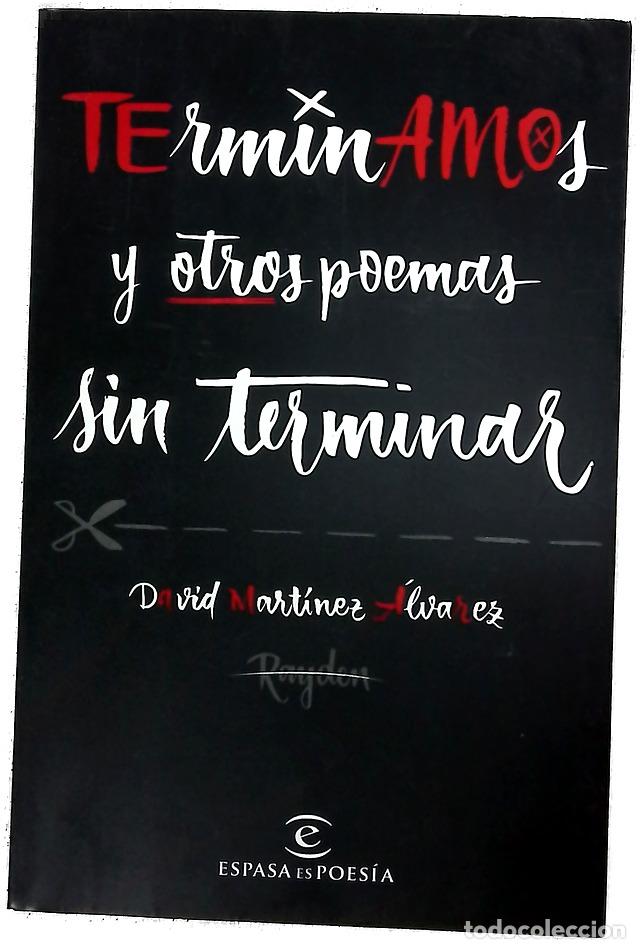 TErminAMOs
y otros poemas
sin terminar
David Martínez Álvarez
Rayden
e
ESPASA ESPOESÍA
todocoleccion